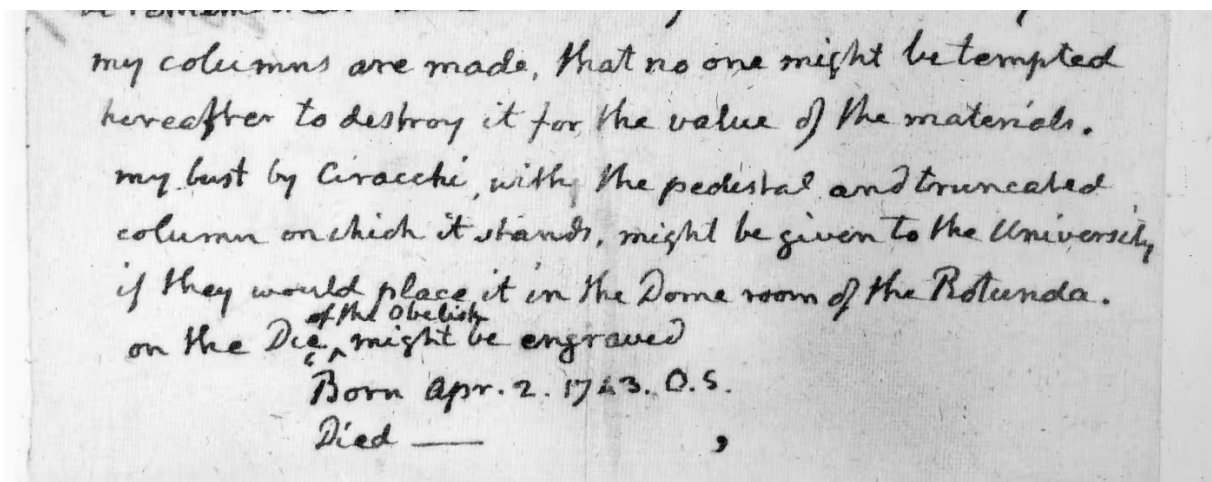 my columns are made, that no one might be tempted
hereafter to destroy it for the value of the materials.
my bust by Ciracchi, with the pedestal and truncated
column on which it stands, might be given to the University
if they would place it in the Dome room of the Rotunda.
of the Obelisk
on the Die ^ might be engraved
" Born Apr. 2. 1743. O.S.
Died —— "